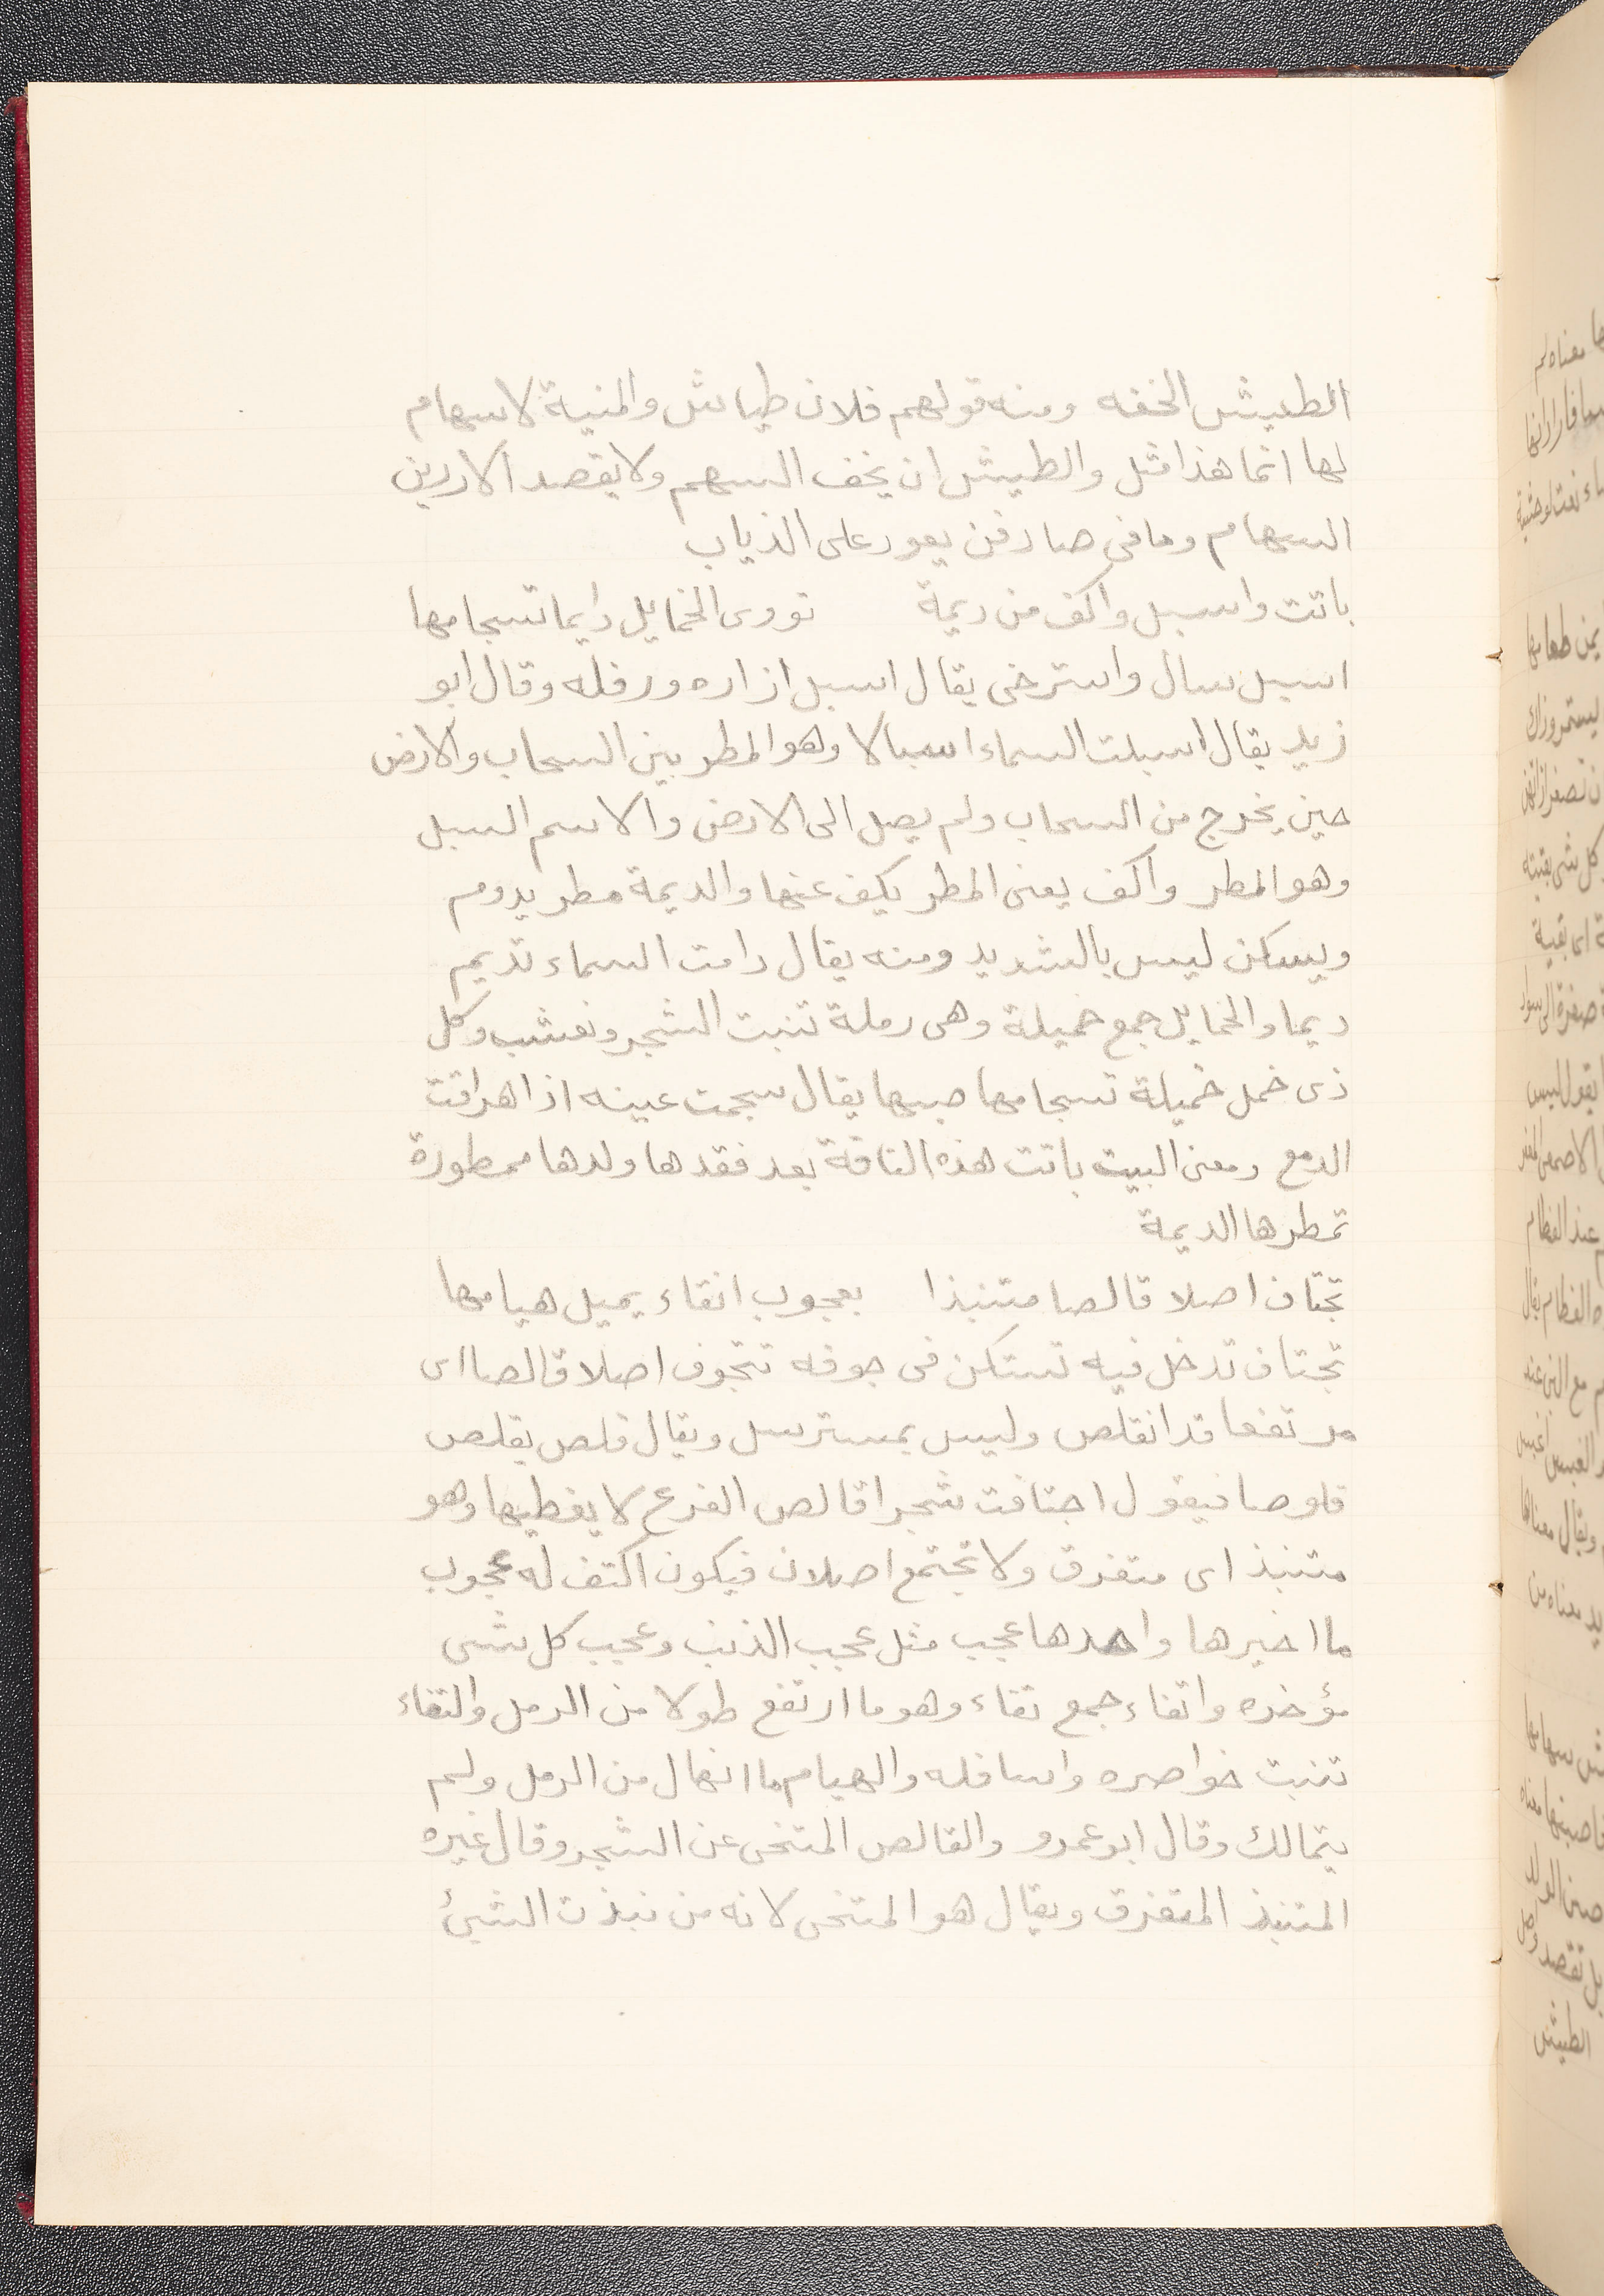 الطيش الخفه ومنه قولهم فلان طياش والمنية لا سهام
لها انما هذا مثل والطيش ان يخف السهم ولا يقصد الاردين
السهام وما فى صادفن يعود على الذياب
باتت واسبل واكف من ديمة تروى الخمايل دايما تسجامها
اسبل سال واسترخى يقال اسبل ازاره ورفله وقال ابو
زيد يقال اسبلت السماء اسبالا وهو المطر بين السحاب والارض
حين يخرج من السحاب ولم يصل الى الارض والاسم السبل
وهو المطر واكف يعنى المطر يكف عنها والديمة مطر يدوم
ويسكن ليس بالشديد ومنه يقال دامت السماء تديم
ديما والخمايل جمع خميلة وهى رملة تنبت الشجر وتعشب وكل
ذى خمل خميلة تسجامها صبها يقال سجمت عينه اذا هراقت
الدمع ومعنى البيت باتت هذه الناقة بعد فقدها ولدها ممطورة
تمطرها الديمة
تجتاف اصلا قالصا متنبذا بعجوب انقاء يميل هيامها
تجتاف تدخل فيه تستكن فى جوفه تتجوف اصلا قالصا اى
مرتفعا قد انقلص وليس بمسترسل ويقال قلص يقلص
قلوصا فيقول اجتافت شجرا قالص الفرع لا يغطيها وهو
متنبذ اى متفرق ولا تجتمع اصلان فيكون اكتف له عجوب
ما اخيرها واحدها عجب مثل عجب الذنب وعجب كل شى
مؤخره وانقاء جمع نقاء وهو ما ارتفع طولا من الرمل والنقاء
تنبت خواصره واسافله والهيام ما انهال من الرمل ولم
يتمالك وقال ابو عمرو والقالص المتنحى عن الشجر وقال غيره
المتنبذ المتفرق ويقال هو المتنحى لانه من نبذت الشيئ